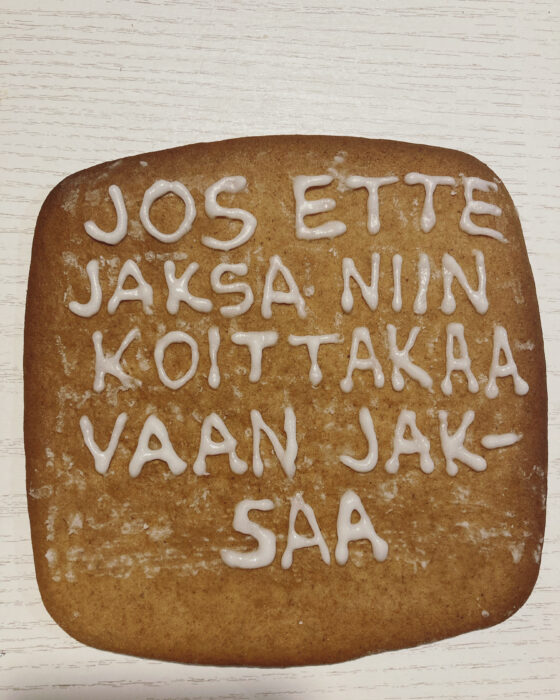 JOS ETTE
JAKSA NIIN
KOITTAKAA
VAAN JAK-
SAA